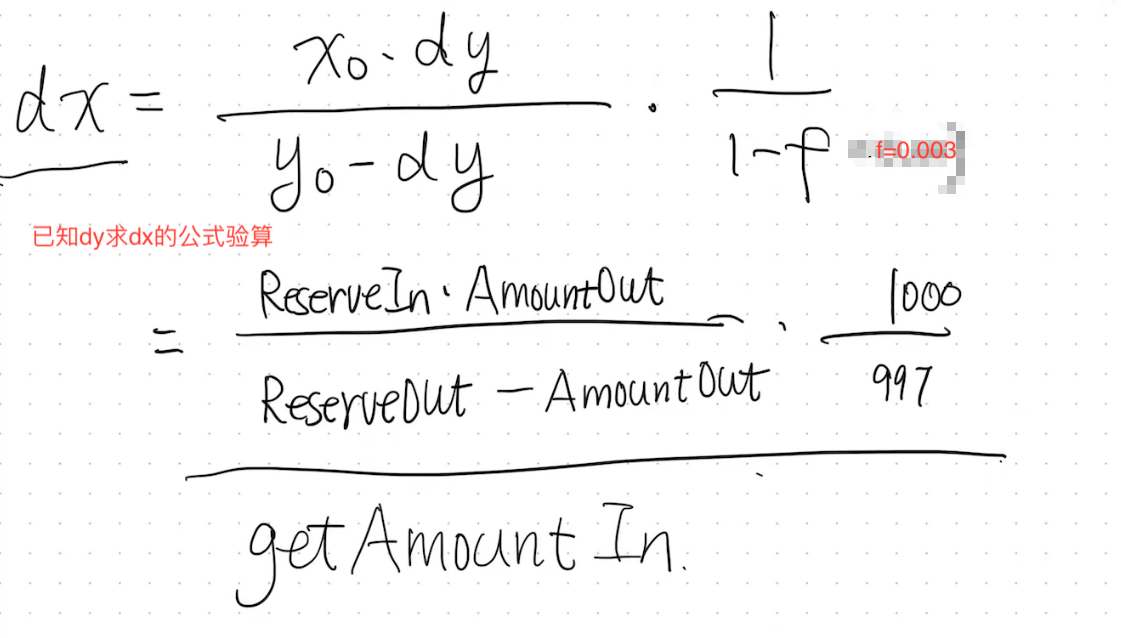 dx = x0 · dy / y0 - dy · 1 / 1-f f=0.003
已知dy求dx的公式验算
= ReserveIn · AmountOut / ReserveOut - AmountOut · 1000 / 997
getAmountIn.